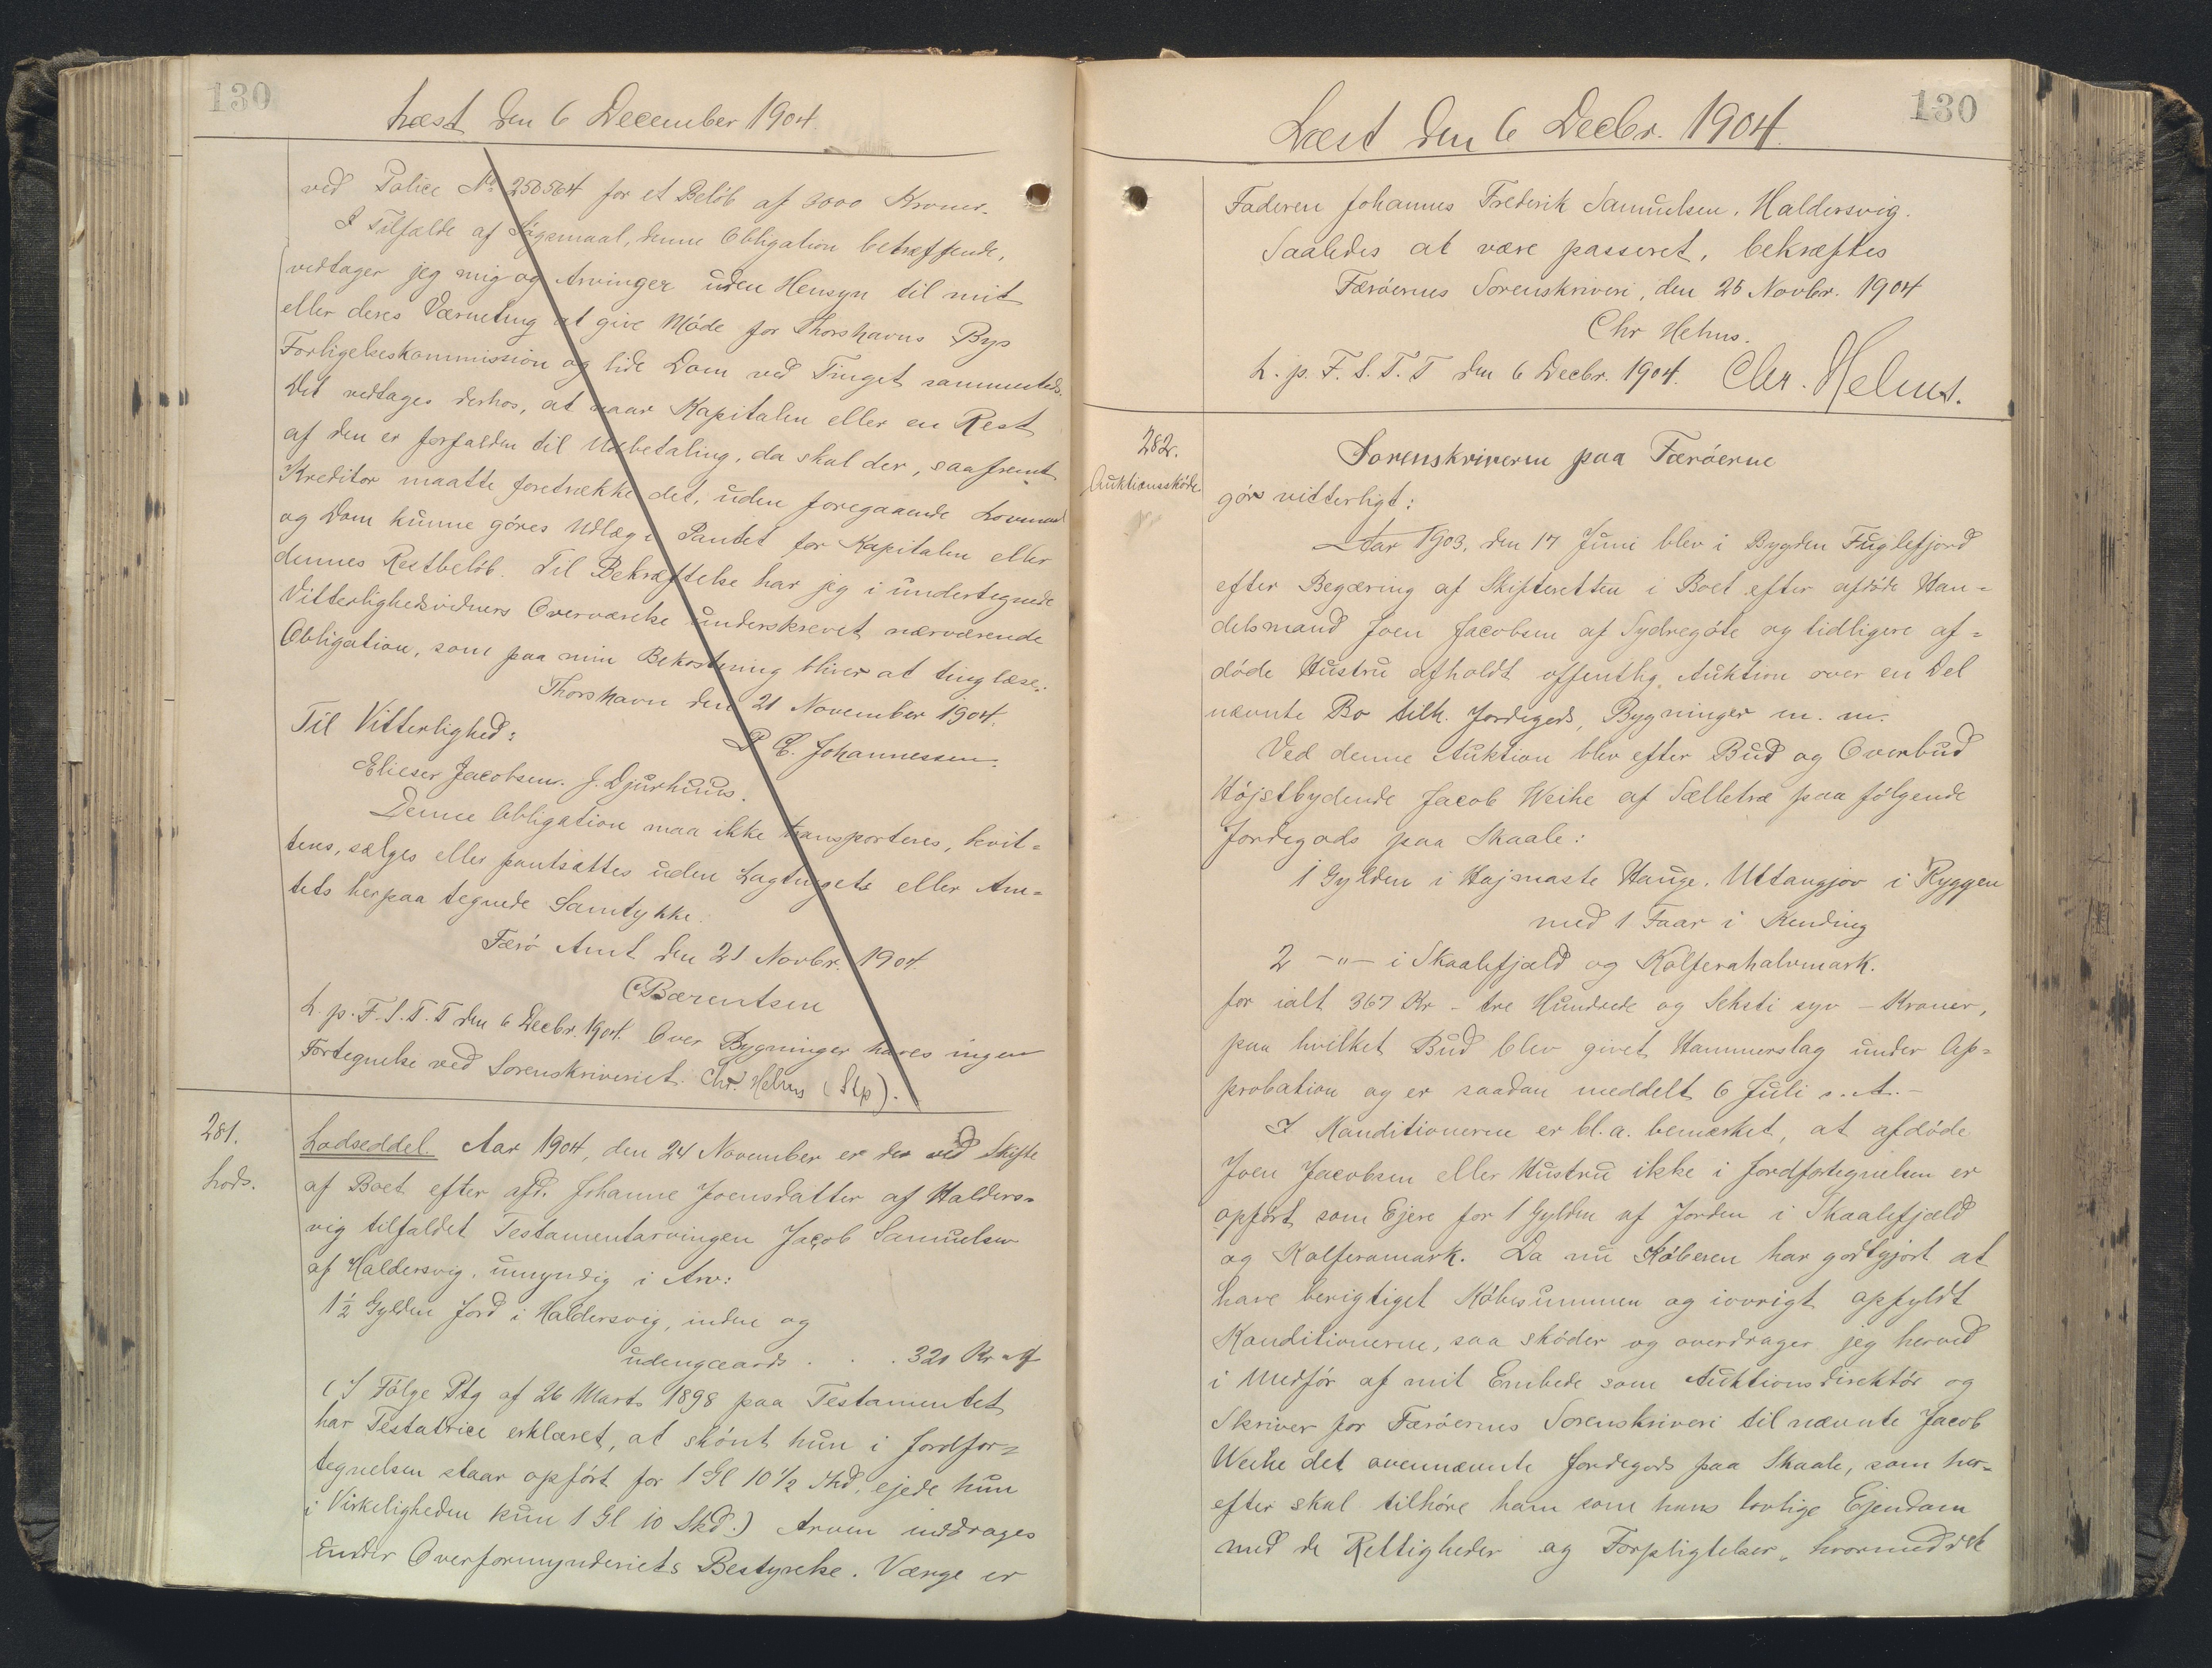 130
Læst den 6 December 1904.
ved Police No. 250564 for et Beløb af 3000 Kroner.
I Tilfælde af Søgsmaal, denne Obligation betræffende,
vedtager jeg mig og Arvinger uden Hensyn til mit
eller deres Værneting at give Møde for Thorshavns Bys
Forligelseskommission og lide Dom ved Tinget sammesteds.
Det vedtages derhos, at naar Kapitalen eller en Rest
af den er forfalden til Udbetaling, da skal der, saafremt
Kreditor maatte foretrække det, uden foregaaende Lovmaal
og Dom kunne gøres Udlæg i Pantet for Kapitalen eller
dennes Restbeløb. Til Bekræftelse har jeg i undertegnede
Vitterlighedsvidners Overværelse underskrevet nærværende
Obligation, som paa min Bekostning bliver at tinglæse.
Thorshavn den 21 November 1904.
Til Vitterlighed:
P C. Johannessen.
Elieser Jacobsen. J. Djurhuus.
Denne Obligation maa ikke transporteres, kvit=
teres, sælges eller pantsættes uden Lagtingets eller Am=
tets herpaa tegnede Samtykke.
Færø Amt den 21 Novbr. 1904.
CBærentsen
L. p. F. S. T. T den 6 Decbr. 1904. Over Bygninger haves ingen
Fortegnelse ved Sorenskriveriet. Chr. Helms (Stp).
281.
Lods.
Lodseddel. Aar 1904, den 24 November er der ved Skifte
af Boet efter afd. Johanne Joensdatter af Halders=
vig tilfaldet Testamentarvingen Jacob Samuelsen
af Haldersvig, umyndig i Arv:
1½ Gylden Jord i Haldersvig, inden og
udengaards . . . 321 Kr " Ø
(I Følge Ptg af 26 Marts 1898 paa Testamentet
har Testatrice erklæret, at skønt hun i Jordfor=
tegnelsen staar opført for 1 Gl 10½ Skd, ejede hun
i Virkeligheden kun 1 Gl 10 Skd.) Arven inddrages
under Overformynderiets Bestyrelse. Værge er
130
Læst den 6 Decbr. 1904.
Faderen Johannes Frederik Samuelsen, Haldersvig.
Saaledes at være passeret, bekræftes
Færøernes Sorenskriveri, den 25 Novbr. 1904
Chr Helms.
L. p. F. S. T. T den 6 Decbr. 1904. Chr. Helms.
282.
Auktionsskøde.
Sorenskriveren paa Færøerne
gør vitterligt:
Aar 1903, den 17 Juni blev i Bygden Fuglefjord
efter Begæring af Skifteretten i Boet efter afdøde Han=
delsmand Joen Jacobsen af Sydregøte og tidligere af=
døde Hustru afholdt offentlig Auktion over en Del
nævnte Bo tilh. Jordegods, Bygninger m. m.
Ved denne Auktion blev efter Bud og Overbud
Højstbydende Jacob Weihe af Sælletræ paa følgende
Jordegods paa Skaale:
1 Gylden i Hajmaste Hauge, Uttangjov i Ryggen
med 1 Faar i Kending
2 -"- i Skaalefjæld og Kolferahalvmark.
for ialt 367 Kr - tre Hundrede og Seksti syv - Kroner,
paa hvilket Bud blev givet Hammerslag under Ap=
probation og er saadan meddelt 6 Juli s. A. -
I Konditionerne er bl. a. bemærket, at afdøde
Joen Jacobsen eller Hustru ikke i Jordfortegnelsen er
opført som Ejere for 1 Gylden af Jorden i Skaalefjæld
og Kolferamark. Da nu Køberen har godtgjort at
have berigtiget Købesummen og iøvrigt opfyldt
Konditionerne, saa skøder og overdrager jeg herved
i Medfør af mit Embede som Auktionsdirektør og
Skriver for Færøernes Sorenskriveri til nævnte Jacob
Weihe det ovennævnte Jordegods paa Skaale, som her=
efter skal tilhøre ham som hans lovlige Ejendom
med de Rettigheder og Forpligtelser, hvormed det